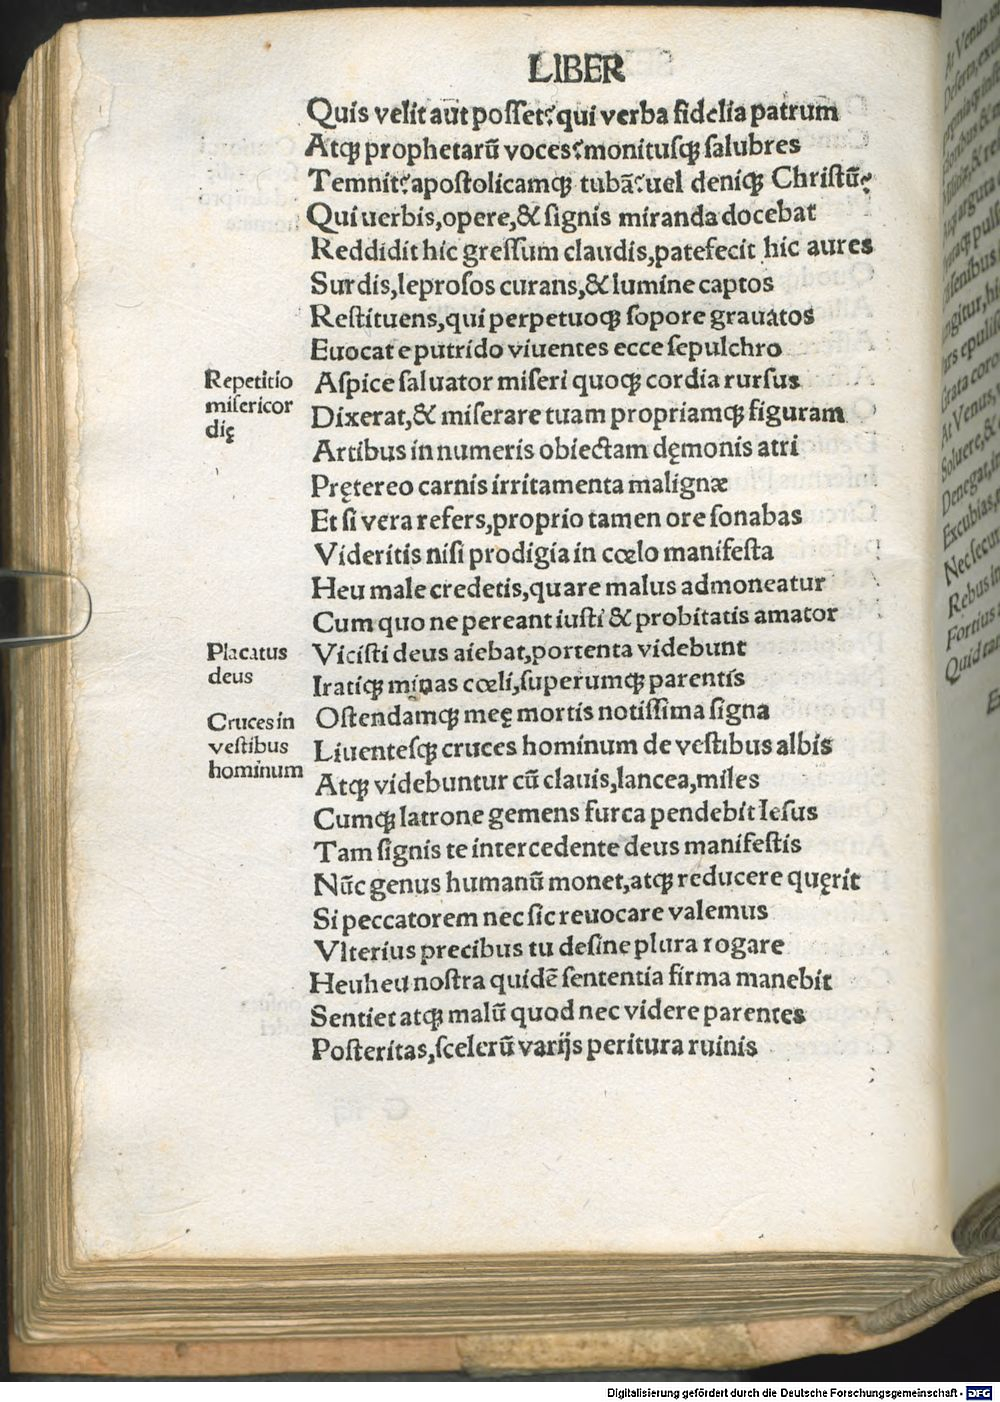 LIBER
Quis velit aut posset? qui verba fidelia patrum
Atqꝫ prophetarū voces? monitusqꝫ salubres
Temnit? apostolicamqꝫ tubā? uel deniqꝫ Christū?
Qui uerbis, opere, & signis miranda docebat
Reddidit hic gressum claudis, patefecit hic aures
Surdis, leprosos curans, & lumine captos
Restituens, qui perpetuoqꝫ sopore grauatos
Euocat e putrido viuentes ecce sepulchro
Repetitio
misericor
dię
Aspice saluator miseri quoqꝫ cordia rursus
Dixerat, & miserare tuam propriamqꝫ figuram
Artibus in numeris obiectam dęmonis atri
Prętereo carnis irritamenta malignæ
Et si vera refers, proprio tamen ore sonabas
Videritis nisi prodigia in cœlo manifesta
Heu male credetis, quare malus admoneatur
Cum quo ne pereant iusti & probitatis amator
Placatus
deus
Vicisti deus aiebat, portenta videbunt
Iratiqꝫ minas cœli, superumqꝫ parentis
Cruces in
vestibus
hominum
Ostendamqꝫ meę mortis notissima signa
Liuentesqꝫ cruces hominum de vestibus albis
Atqꝫ videbuntur cū clauis, lancea, miles
Cumqꝫ latrone gemens furca pendebit Iesus
Tam signis te intercedente deus manifestis
Nūc genus humanū monet, atqꝫ reducere quęrit
Si peccatorem nec sic reuocare valemus
Vlterius precibus tu desine plura rogare
Heuheu nostra quidē sententia firma manebit
Sentiet atqꝫ malū quod nec videre parentes
Posteritas, scelerū varijs peritura ruinis
Digitalisierung gefördert durch die Deutsche Forschungsgemeinschaft - DFG